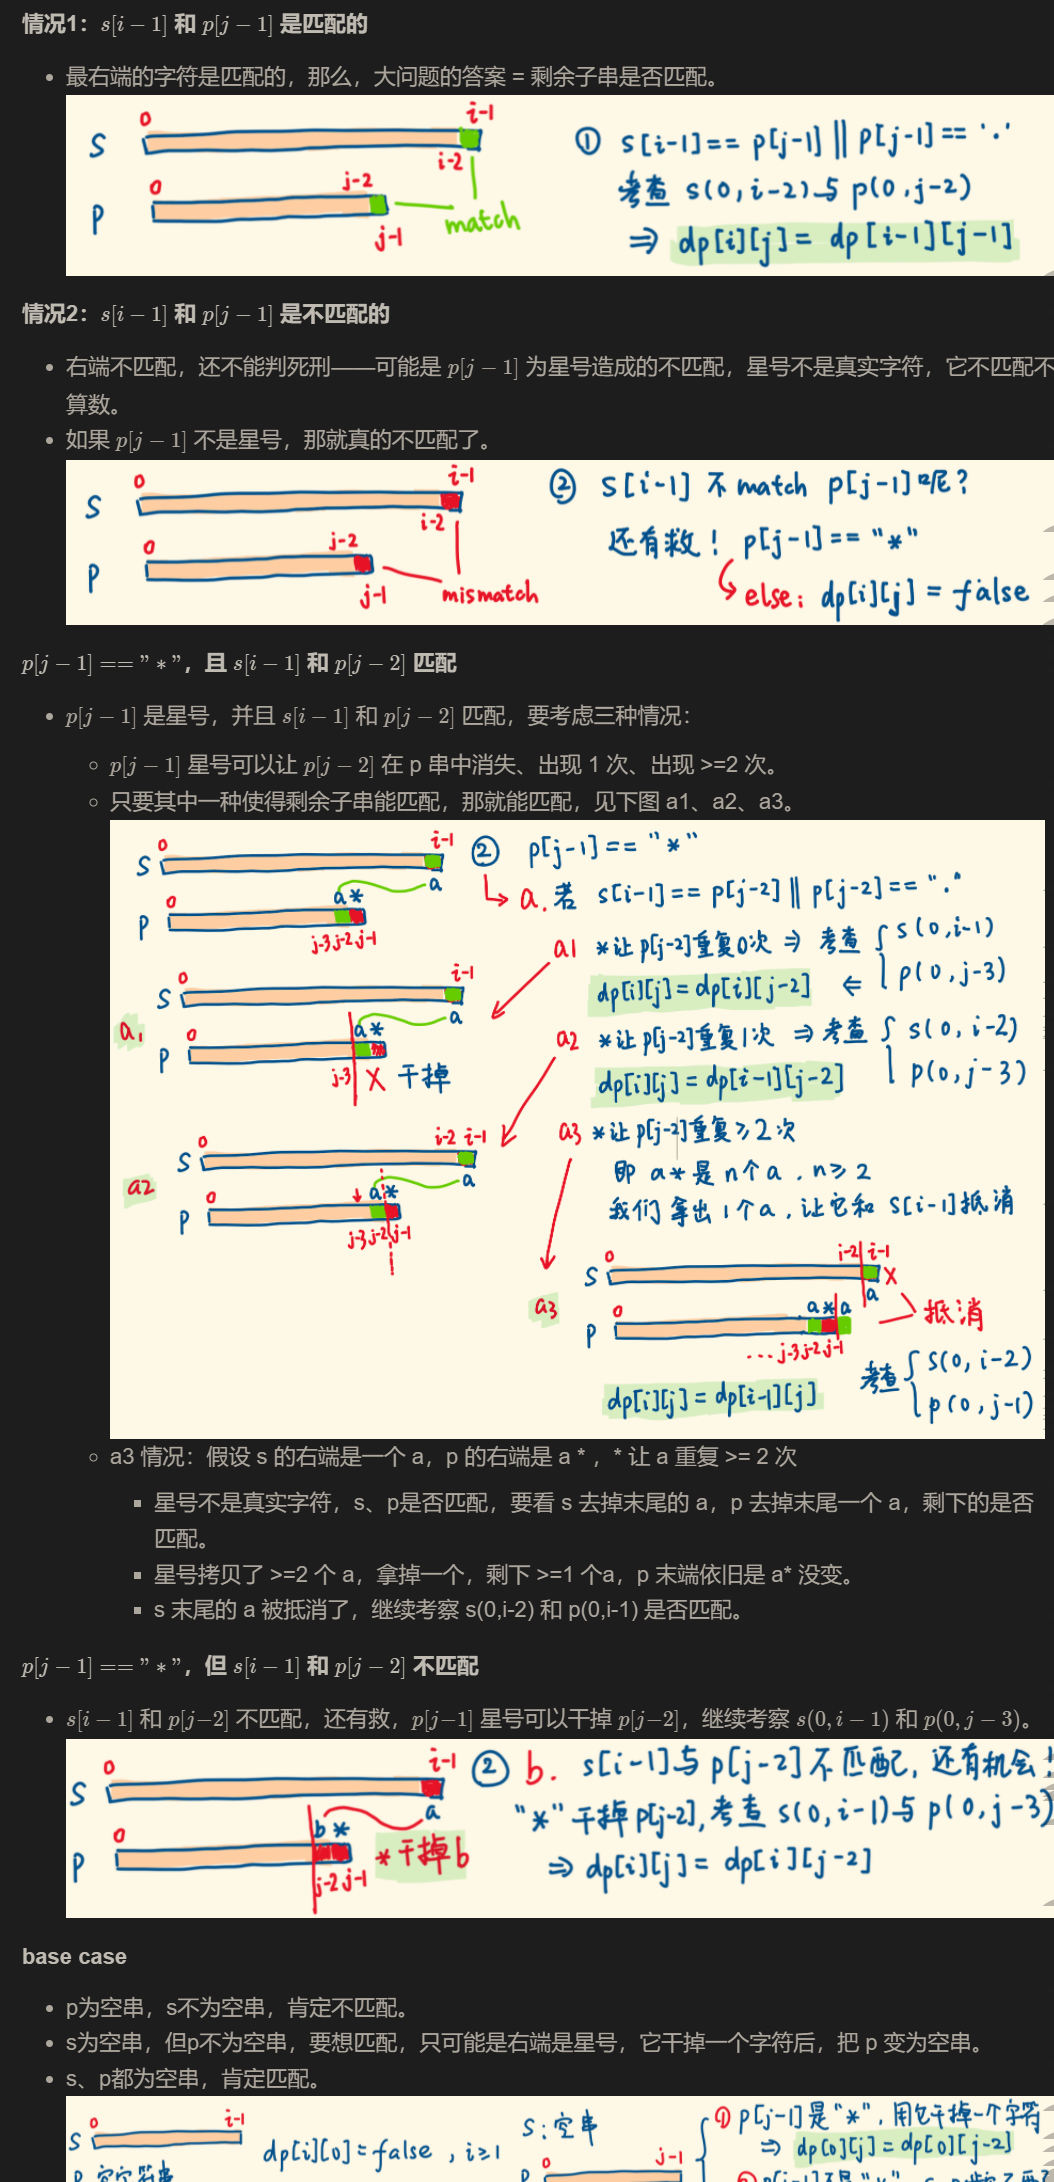 情况1：s[i − 1] 和 p[j − 1] 是匹配的
• 最右端的字符是匹配的，那么，大问题的答案 = 剩余子串是否匹配。
0 i-1
S
i-2
0 j-2
P
j-1
match
① s[i-1]== p[j-1] || p[j-1]== '.'
考查 s(0,i-2)与 p(0,j-2)
⇒ dp[i][j] = dp[i-1][j-1]
情况2：s[i − 1] 和 p[j − 1] 是不匹配的
• 右端不匹配，还不能判死刑——可能是 p[j − 1] 为星号造成的不匹配，星号不是真实字符，它不匹配不
算数。
• 如果 p[j − 1] 不是星号，那就真的不匹配了。
0 i-1
S
i-2
0 j-2
P
j-1
mismatch
② s[i-1] 不 match p[j-1]呢?
还有救! p[j-1]== "*"
else: dp[i][j] = false
p[j − 1] == ” ∗ ”，且 s[i − 1] 和 p[j − 2] 匹配
• p[j − 1] 是星号，并且 s[i − 1] 和 p[j − 2] 匹配，要考虑三种情况：
○ p[j − 1] 星号可以让 p[j − 2] 在 p 串中消失、出现 1 次、出现 >=2 次。
○ 只要其中一种使得剩余子串能匹配，那就能匹配，见下图 a1、a2、a3。
0 i-1
S
a
0 a*
P
j-3 j-2 j-1
② p[j-1]== "*"
a. 若 s[i-1]== p[j-2] || p[j-2]== "."
a1 *让 p[j-2]重复0次 ⇒ 考查 { s(0,i-1)
p(0,j-3)
dp[i][j]=dp[i][j-2] ⇐
0 i-1
S
a
a1
0 a*
P
j-3 X 干掉
a2 *让 p[j-2]重复1次 ⇒ 考查 { s(0,i-2)
p(0,j-3)
dp[i][j]=dp[i-1][j-2]
a3 *让 p[j-2]重复≥2次
即 a*是n个a，n≥2
我们拿出1个a，让它和 s[i-1]抵消
0 i-2 i-1
S
a
a2
0 a*
P
j-3 j-2 j-1
0 i-2 i-1
S X
a
a3
0 a* a
P
...j-3 j-2 j-1
抵消
考查 { s(0,i-2)
p(0,j-1)
dp[i][j]=dp[i-1][j]
○ a3 情况：假设 s 的右端是一个 a，p 的右端是 a * ，* 让 a 重复 >= 2 次
▪ 星号不是真实字符，s、p是否匹配，要看 s 去掉末尾的 a，p 去掉末尾一个 a，剩下的是否
匹配。
▪ 星号拷贝了 >=2 个 a，拿掉一个，剩下 >=1 个a，p 末端依旧是 a* 没变。
▪ s 末尾的 a 被抵消了，继续考察 s(0,i-2) 和 p(0,i-1) 是否匹配。
p[j − 1] == ” ∗ ”，但 s[i − 1] 和 p[j − 2] 不匹配
• s[i − 1] 和 p[j−2] 不匹配，还有救，p[j−1] 星号可以干掉 p[j−2]，继续考察 s(0, i − 1) 和 p(0, j − 3)。
0 i-1
S
a
0 b *
P
j-2 j-1
*干掉b
② b. s[i-1]与 p[j-2]不匹配，还有机会!
"*"干掉p[j-2],考查 s(0,i-1)与 p(0,j-3)
⇒ dp[i][j] = dp[i][j-2]
base case
• p为空串，s不为空串，肯定不匹配。
• s为空串，但p不为空串，要想匹配，只可能是右端是星号，它干掉一个字符后，把 p 变为空串。
• s、p都为空串，肯定匹配。
0 i-1
S
dp[i][0]=false , i≥1
S:空串
0 j-1
P
① p[j-1]是"*"，用它干掉一个字符
⇒ dp[0][j]=dp[0][j-2]